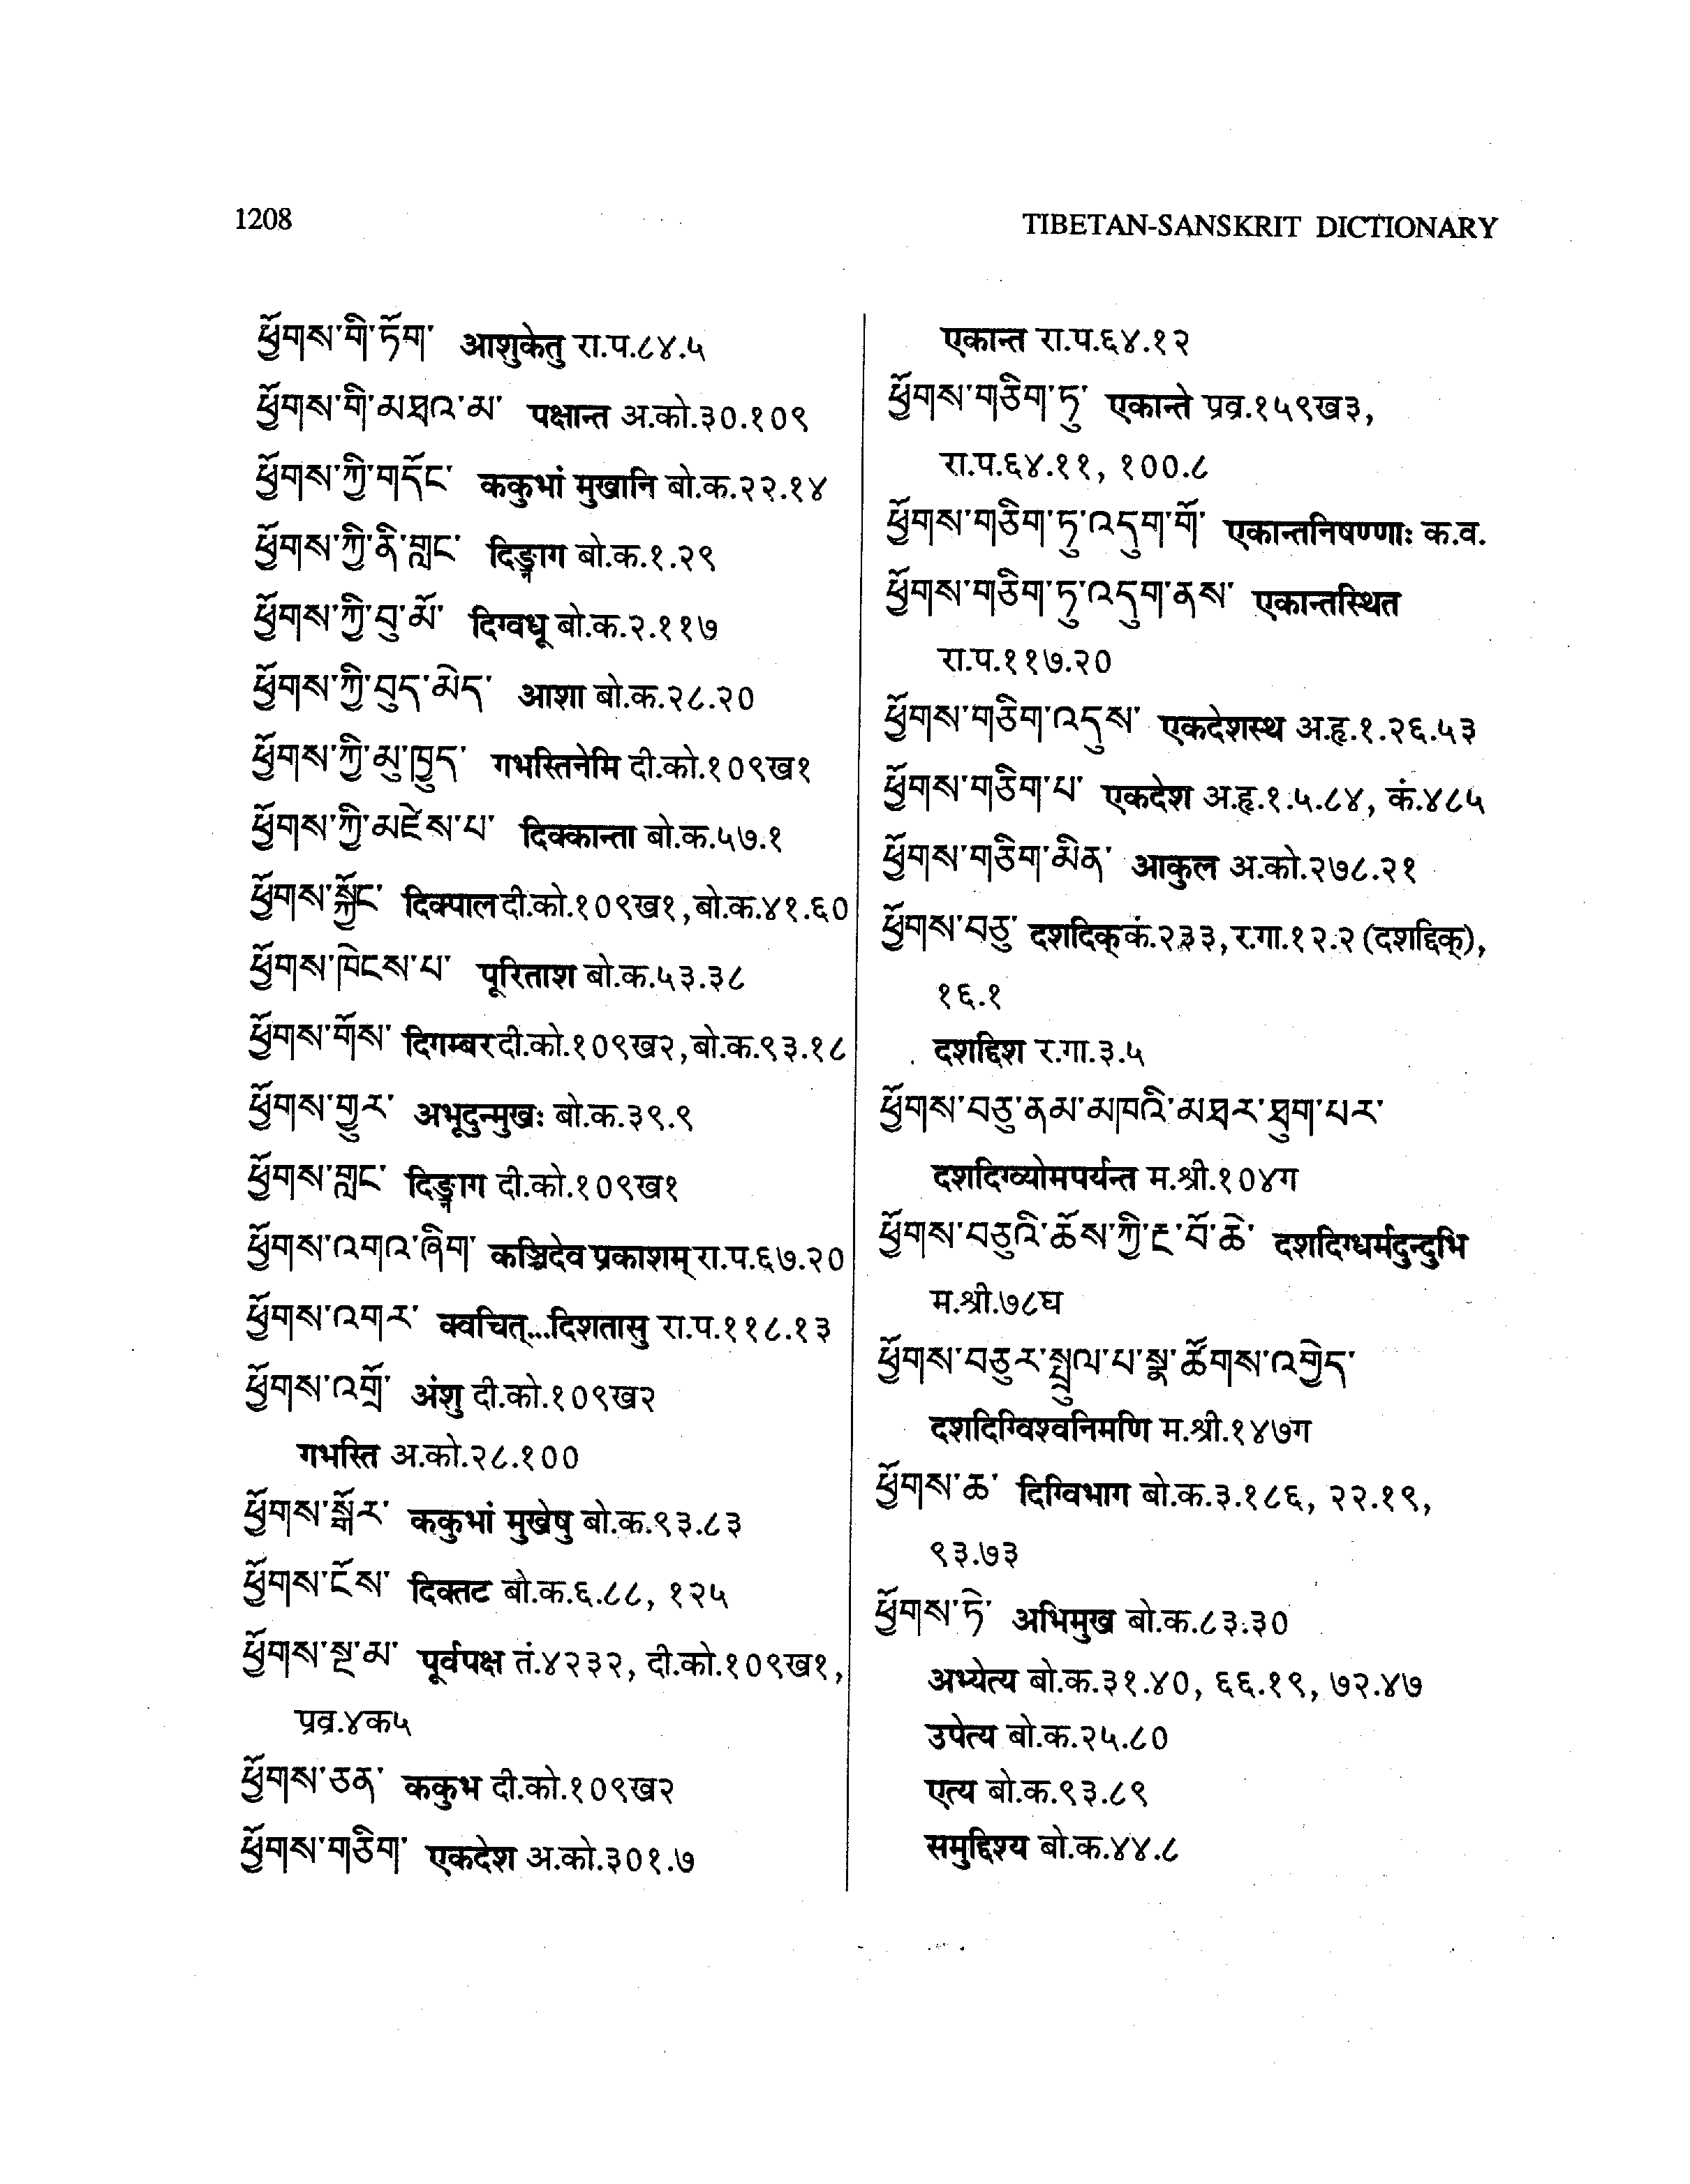 1208
TIBETAN-SANSKRIT DICTIONARY
ཕྱོགས་གི་ཏོག་ आशुकेतु रा.प.८४.५
ཕྱོགས་གི་མཐའ་མ་ पक्षान्त अ.को.३०.१०९
ཕྱོགས་ཀྱི་གདོང་ ककुभां मुखानि बो.क.२२.१४
ཕྱོགས་ཀྱི་ནི་གླང་ दिङ्नाग बो.क.१.२९
ཕྱོགས་ཀྱི་བུ་མོ་ दिग्वधू बो.क.२.११७
ཕྱོགས་ཀྱི་བུད་མེད་ आशा बो.क.२८.२०
ཕྱོགས་ཀྱི་མུ་ཁྱུད་ गभस्तिनेमि दी.को.१०९ख१
ཕྱོགས་ཀྱི་མཛེས་པ་ दिक्कान्ता बो.क.५७.१
ཕྱོགས་སྐྱོང་ दिक्पाल दी.को.१०९ख१, बो.क.४१.६०
ཕྱོགས་ཁེངས་པ་ पूरिताश बो.क.५३.३८
ཕྱོགས་གོས་ दिगम्बर दी.को.१०९ख२, बो.क.९३.१८
ཕྱོགས་གྱུར་ अभूदुन्मुखः बो.क.३९.९
ཕྱོགས་གླང་ दिङ्नाग दी.को.१०९ख१
ཕྱོགས་འགའ་ཞིག་ कञ्चिदेव प्रकाशम् रा.प.६७.२०
ཕྱོགས་འགར་ क्वचित्...दिशतासु रा.प.११८.१३
ཕྱོགས་འགྲོ་ अंशु दी.को.१०९ख२
गभस्ति अ.को.२८.१००
ཕྱོགས་སྒོར་ ककुभां मुखेषु बो.क.९३.८३
ཕྱོགས་ངོས་ दिक्तट बो.क.६.८८, १२५
ཕྱོགས་སྔ་མ་ पूर्वपक्ष तं.४२३२, दी.को.१०९ख१,
प्रव्र.४क५
ཕྱོགས་ཅན་ ककुभ दी.को.१०९ख२
ཕྱོགས་གཅིག་ एकदेश अ.को.३०१.७
एकान्त रा.प.६४.१२
ཕྱོགས་གཅིག་ཏུ་ एकान्ते प्रव्र.१५९ख३,
रा.प.६४.११, १००.८
ཕྱོགས་གཅིག་ཏུ་འདུག་གོ་ एकान्तनिषण्णाः क.व.
ཕྱོགས་གཅིག་ཏུ་འདུག་ནས་ एकान्तस्थित
रा.प.११७.२०
ཕྱོགས་གཅིག་འདུས་ एकदेशस्थ अ.हृ.१.२६.५३
ཕྱོགས་གཅིག་པ་ एकदेश अ.हृ.१.५.८४, कं.४८५
ཕྱོགས་གཅིག་མིན་ आकुल अ.को.२७८.२१
ཕྱོགས་བཅུ་ दशदिक् कं.२३३, र.गा.१२.२ (दशद्दिक्),
१६.१
दशद्दिश र.गा.३.५
ཕྱོགས་བཅུ་ནམ་མཁའི་མཐར་ཐུག་པར་
दशदिग्व्योमपर्यन्त म.श्री.१०४ग
ཕྱོགས་བཅུའི་ཆོས་ཀྱི་རྔ་བོ་ཆེ་ दशदिग्धर्मदुन्दुभि
म.श्री.७८घ
ཕྱོགས་བཅུར་སྤྲུལ་པ་སྣ་ཚོགས་འགྱེད་
दशदिग्विश्वनिमणि म.श्री.१४७ग
ཕྱོགས་ཆ་ दिग्विभाग बो.क.३.१८६, २२.१९,
९३.७३
ཕྱོགས་ཏེ་ अभिमुख बो.क.८३.३०
अभ्येत्य बो.क.३१.४०, ६६.१९, ७२.४७
उपेत्य बो.क.२५.८०
एत्य बो.क.९३.८९
समुद्दिश्य बो.क.४४.८